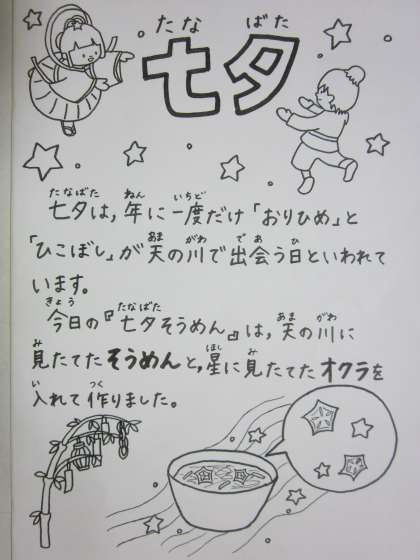 たなばた
七夕
七夕は,年に一度だけ「おりひめ」と
「ひこぼし」が天の川で出会う日といわれて
います。
今日の『七夕そうめん』は,天の川に
見たてたそうめんと,星に見たてたオクラを
入れて作りました。